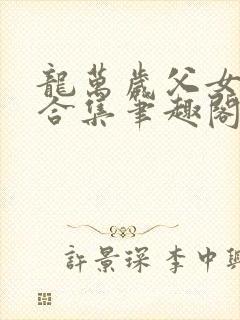 龍萬歲父女
合集筆趣閣
許景琛 李中興